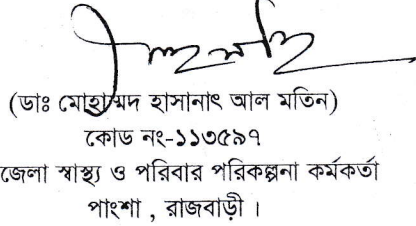 (ডাঃ মোহাম্মদ হাসানাৎ আল মতিন)
কোড নং-১১৩৫৯৭
জেলা স্বাস্থ্য ও পরিবার পরিকল্পনা কর্মকর্তা
পাংশা , রাজবাড়ী ।